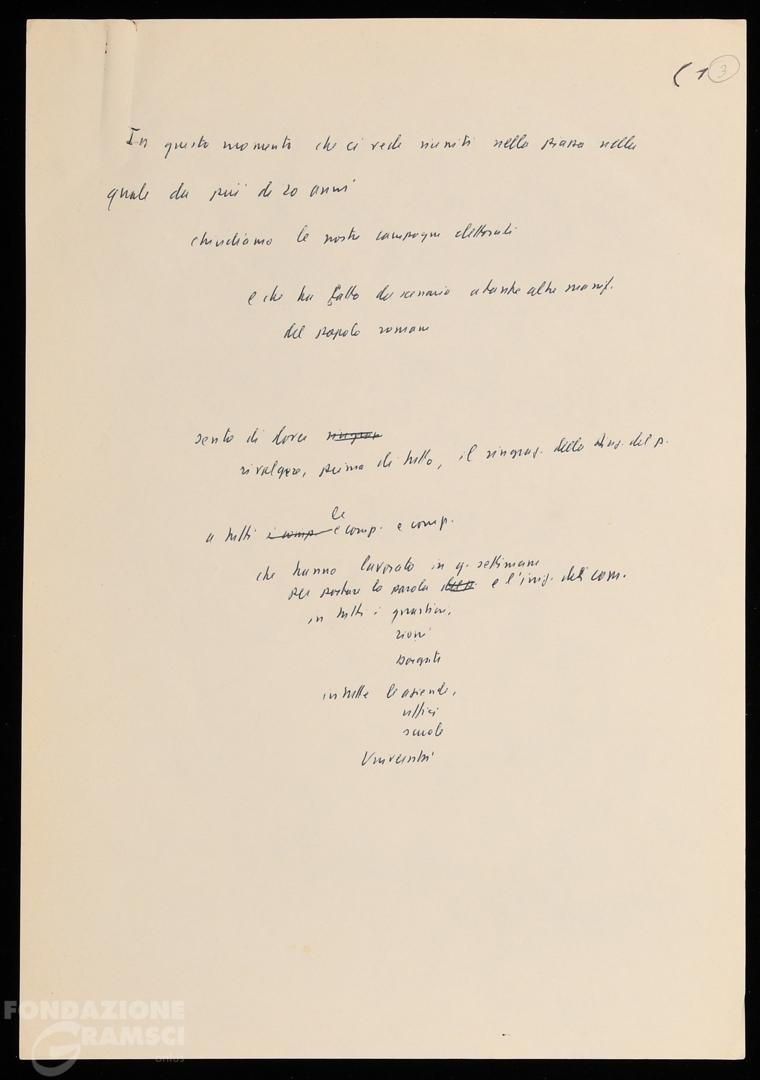 (1 3
In questo momento che ci vede riuniti nella piazza nella
quale da più di 20 anni
chiudiamo le nostre campagne elettorali
e che ha fatto da scenario a tante altre manif.
del popolo romano
sento di dover ringraz
rivolgere, prima di tutto, il ringraz. della del p.
le
a tutti i comp e comp. e comp.
che hanno lavorato in q. settimane
per portare la parola del p. e l'iniz. dei com.
in tutti i quartieri,
rioni
borgate
in tutte le aziende,
uffici
scuole
Università
FONDAZIONE
GRAMSCI
onlus